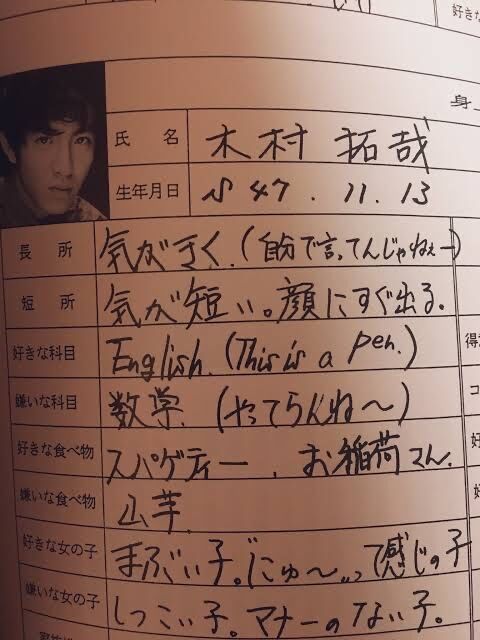 好きな
身
氏 名 木村 拓哉
生年月日 S 47. 11. 13
長 所 気がきく。(自分で言ってんじゃねぇー)
短 所 気が短い。顔にすぐ出る。
好きな科目 English. (This is a pen.)
得意
嫌いな科目 数学. (やってらんね〜)
コ
好きな食べ物 スパゲティー、お稲荷さん.
好
嫌いな食べ物 山芋.
好
好きな女の子 まぶい子。"にゅ〜"って感じの子
嫌いな女の子 しつこい子。マナーのない子。